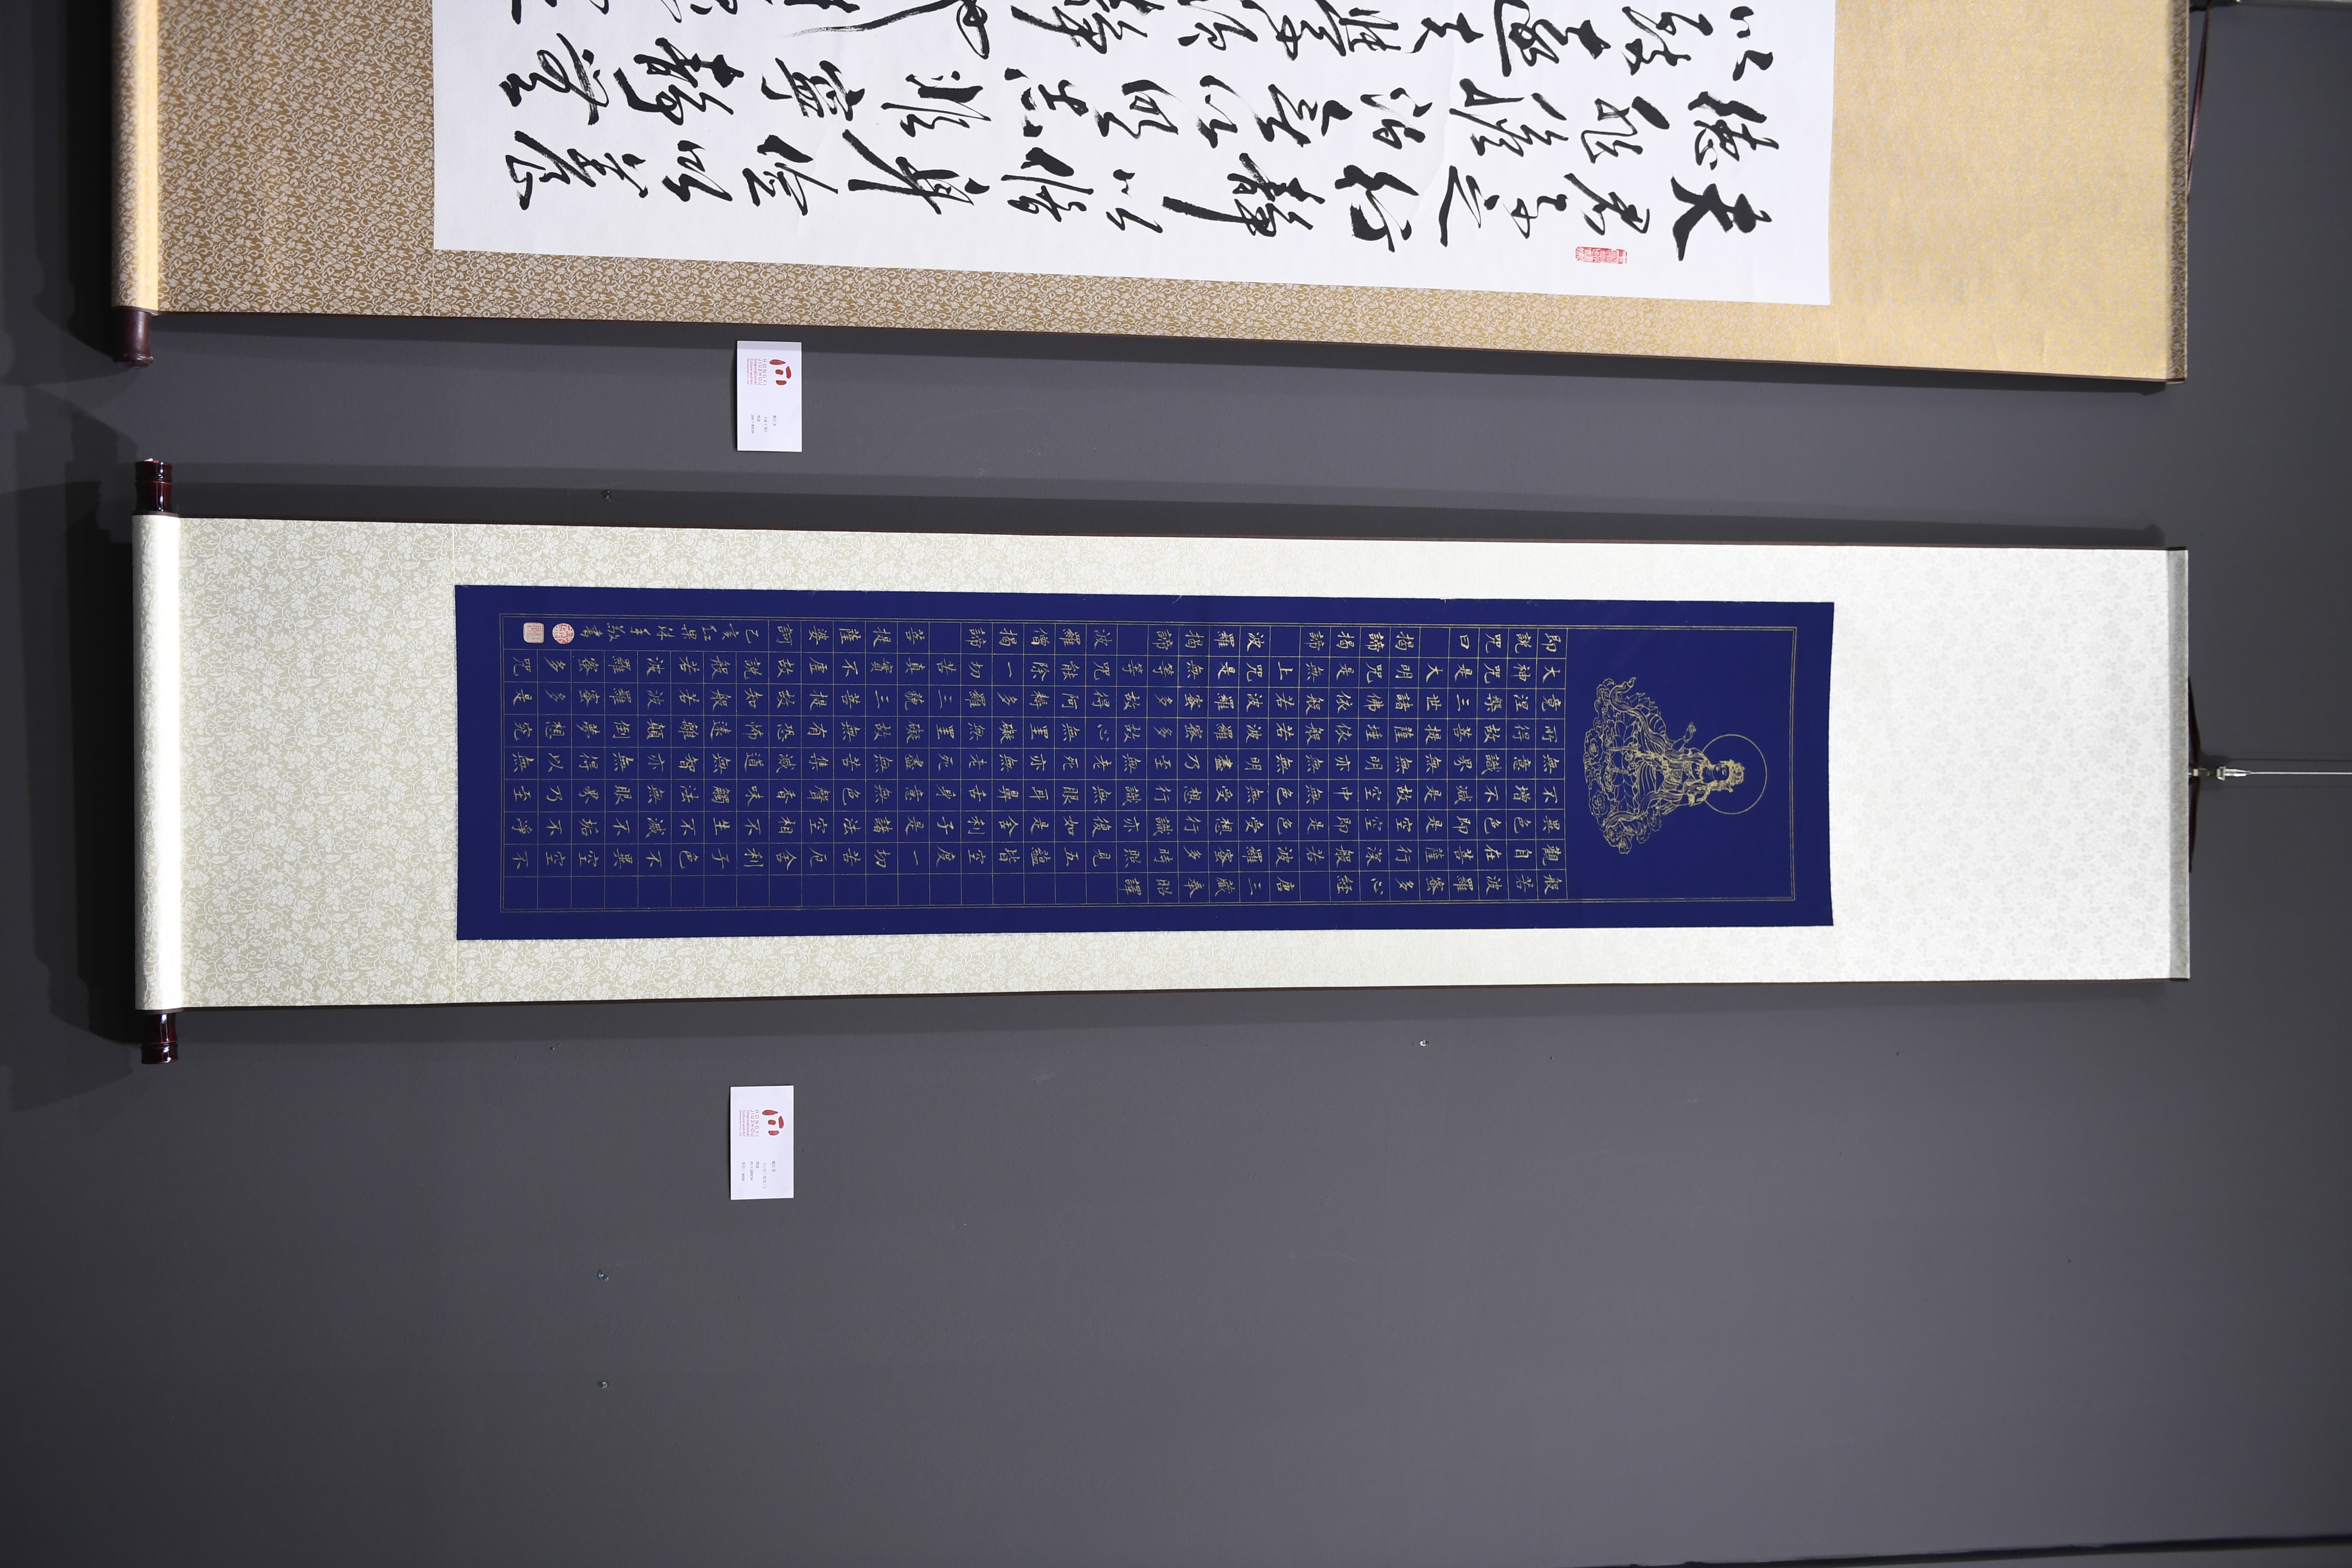 夫君子之行靜以修身儉以養
德非澹泊無以明志非寧靜無
般若波羅蜜多心經 唐三藏奉昭譯
觀自在菩薩行深般若波羅蜜多時照見五蘊皆空度一切苦厄舍利子色不異空空不
異色色即是空空即是色受想行識亦復如是舍利子是諸法空相不生不滅不垢不淨
不增不減是故空中無色無受想行識無眼耳鼻舌身意無色聲香味觸法無眼界乃至
無意識界無無明亦無無明盡乃至無老死亦無老死盡無苦集滅道無智亦無得以無
所得故菩提薩埵依般若波羅蜜多故心無罣礙無罣礙故無有恐怖遠離顛倒夢想究
竟涅槃三世諸佛依般若波羅蜜多故得阿耨多羅三藐三菩提故知般若波羅蜜多是
大神咒是大明咒是無上咒是無等等咒能除一切苦真實不虛故說般若波羅蜜多咒
即說咒曰 揭諦揭諦 波羅揭諦 波羅僧揭諦 菩提薩婆訶 乙亥紅果沐手敬書
HONGYI
JIUZHOU
HONGYI
JIUZHOU